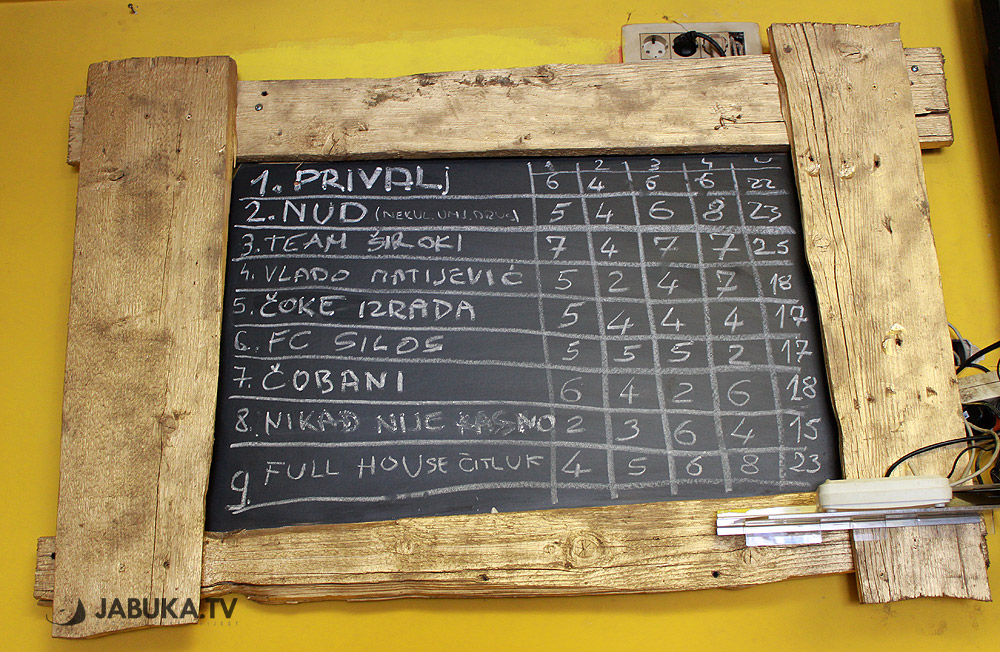 1 2 3 4
1. PRIVALJ 6 4 6 6 22
2. NUD (NEKUL.UMJ.DRUG) 5 4 6 8 23
3. TEAM ŠIROKI 7 4 7 7 25
4. VLADO MATIJEVIĆ 5 2 4 7 18
5. ČOKE IZRADA 5 4 4 4 17
6. FC SILOS 5 5 5 2 17
7. ČOBANI 6 4 2 6 18
8. NIKAD NIJE KASNO 2 3 6 4 15
9 FULL HOUSE ČITLUK 4 5 6 8 23
JABUKA.TV